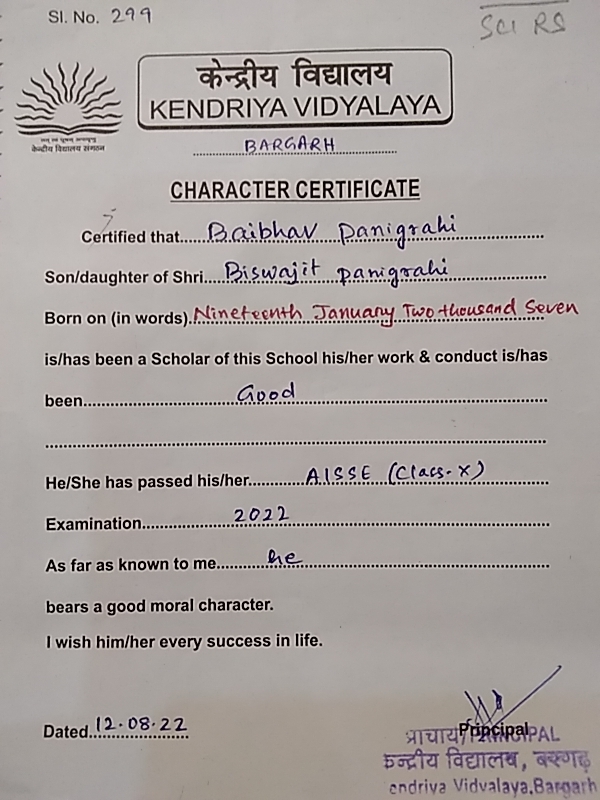 Sl. No. 299
SCI RS
केन्द्रीय विद्यालय
KENDRIYA VIDYALAYA
केन्द्रीय विद्यालय संगठन
BARGARH
CHARACTER CERTIFICATE
Certified that Baibhav Panigrahi
Son/daughter of Shri Biswajit Panigrahi
Born on (in words) Nineteenth January Two thousand Seven
is/has been a Scholar of this School his/her work & conduct is/has
been Good
He/She has passed his/her AISSE (Class-X)
Examination 2022
As far as known to me he
bears a good moral character.
I wish him/her every success in life.
Dated 12.08.22
Principal
प्राचार्य/PRINCIPAL
केन्द्रीय विद्यालय, बरगढ़
endriya Vidyalaya, Bargarh